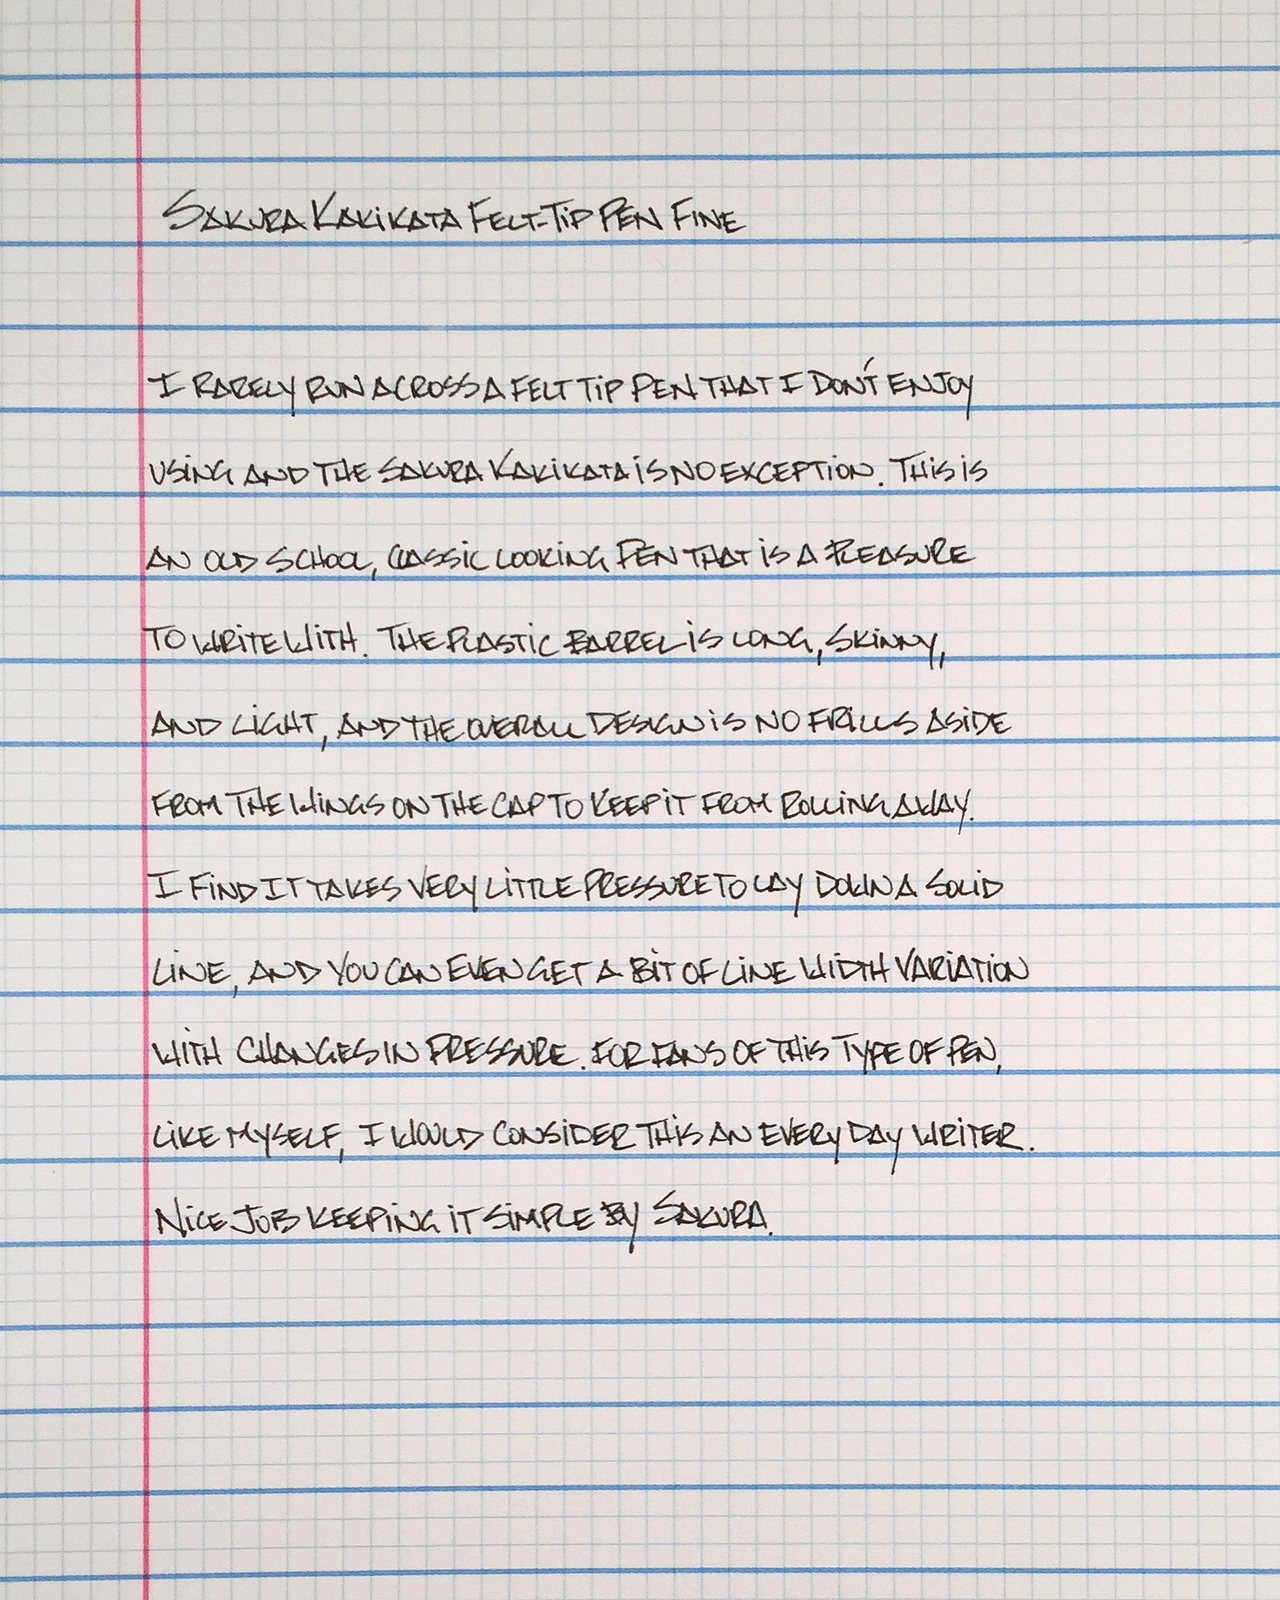 SAKURA KAKIKATA FELT-TIP PEN FINE
I RARELY RUN ACROSS A FELT TIP PEN THAT I DON'T ENJOY
USING AND THE SAKURA KAKIKATA IS NO EXCEPTION. THIS IS
AN OLD SCHOOL, CLASSIC LOOKING PEN THAT IS A PLEASURE
TO WRITE WITH. THE PLASTIC BARREL IS LONG, SKINNY,
AND LIGHT, AND THE OVERALL DESIGN IS NO FRILLS ASIDE
FROM THE WINGS ON THE CAP TO KEEP IT FROM ROLLING AWAY.
I FIND IT TAKES VERY LITTLE PRESSURE TO LAY DOWN A SOLID
LINE, AND YOU CAN EVEN GET A BIT OF LINE WIDTH VARIATION
WITH CHANGES IN PRESSURE. FOR FANS OF THIS TYPE OF PEN,
LIKE MYSELF, I WOULD CONSIDER THIS AN EVERY DAY WRITER.
NICE JOB KEEPING IT SIMPLE BY SAKURA.